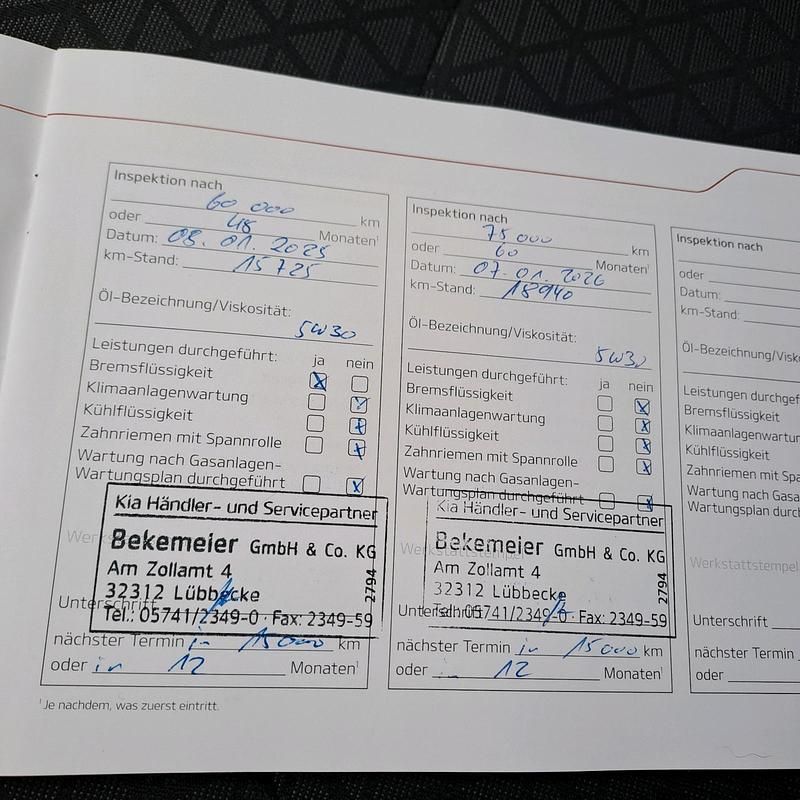 Inspektion nach
60 000 km
oder 48 Monaten¹
Datum: 08.01.2025
km-Stand: 15725
Öl-Bezeichnung/Viskosität:
5W30
Leistungen durchgeführt: ja nein
Bremsflüssigkeit
Klimaanlagenwartung
Kühlflüssigkeit
Zahnriemen mit Spannrolle
Wartung nach Gasanlagen-
Wartungsplan durchgeführt
Kia Händler- und Servicepartner
Bekemeier GmbH & Co. KG
Am Zollamt 4
32312 Lübbecke
2794
Unterschrift
Tel.: 05741/2349-0 · Fax: 2349-59
nächster Termin in 15000 km
oder in 12 Monaten¹
¹Je nachdem, was zuerst eintritt.
Inspektion nach
75 000 km
oder 60 Monaten¹
Datum: 07.01.2026
km-Stand: 18940
Öl-Bezeichnung/Viskosität:
5W30
Leistungen durchgeführt: ja nein
Bremsflüssigkeit
Klimaanlagenwartung
Kühlflüssigkeit
Zahnriemen mit Spannrolle
Wartung nach Gasanlagen-
Wartungsplan durchgeführt
Kia Händler- und Servicepartner
Werkstattstempel
Bekemeier GmbH & Co. KG
Am Zollamt 4
32312 Lübbecke
2794
Unterschrift
Tel.: 05741/2349-0 · Fax: 2349-59
nächster Termin in 15000 km
oder 12 Monaten¹
Inspektion nach
oder
Datum:
km-Stand:
Öl-Bezeichnung/Visk
Leistungen durchgef
Bremsflüssigkeit
Klimaanlagenwartun
Kühlflüssigkeit
Zahnriemen mit Spa
Wartung nach Gasa
Wartungsplan durch
Werkstattstempel
Unterschrift
nächster Termin
oder